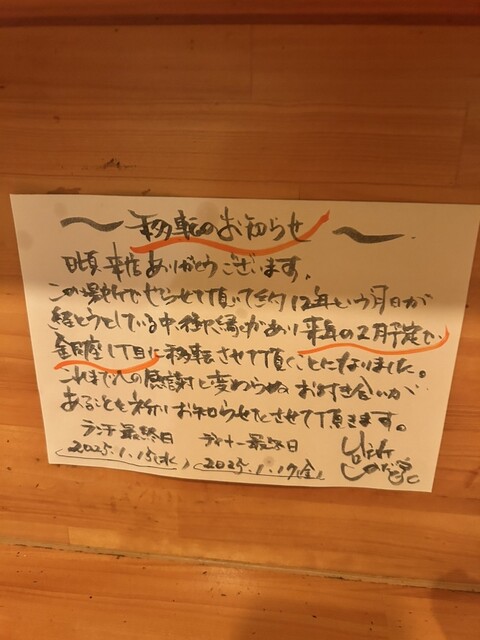 〜移転のお知らせ〜
日頃来店ありがとうございます。
この場所でやらせて頂いて約12年という月日が
経とうとしている中、御縁があり来年の2月予定で
銀座1丁目に移転させて頂くことになりました。
これまでの感謝と変わらぬお付き合いが
あることを祈りお知らせとさせて頂きます。
ランチ最終日 ディナー最終日
2025.1.15(水) 2025.1.17(金)